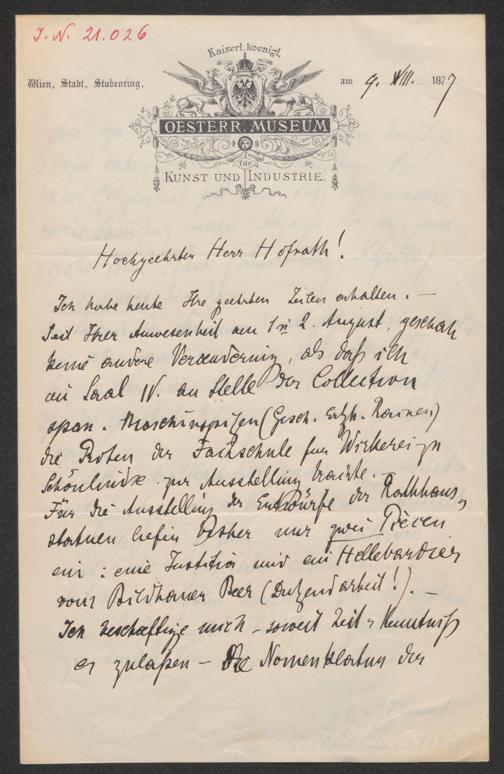 J. N. 21.026
Kaiserl. koenigl.
Wien, Stadt, Stubenring.
am 9. VIII. 1877
OESTERR. MUSEUM
für
KUNST UND INDUSTRIE.
Hochgeehrter Herr Hofrath!
Ich habe heute Ihre geehrten Zeilen erhalten. –
Seit Ihrer Anwesenheit am 1 2. August, geschah
keine andere Veraenderung, als daß ich
im Saal IV. an Stelle der Collection
span. Maschinspitzen (Gesch. Erzh. Rainer)
die Proben der Fachschule für Wirkerei in
Schönlinde zur Ausstellung brachte. –
Für die Ausstellung der Entwürfe der Rathhaus-
statuen liefen bisher nur zwei Piecen
ein: eine Justitia und ein Hellebardier
vom Bildhauer Beer (Dutzendarbeit!). –
Ich beschaeftige mich – soweit Zeit u Kenntniß
es zulaßen – Nomenklatur der